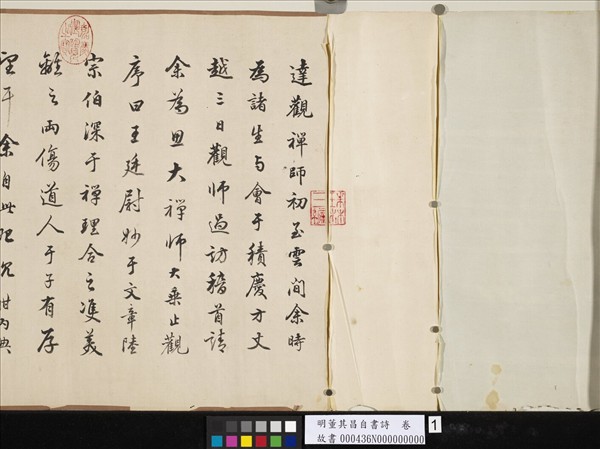 達觀禪師初至雲間余時
為諸生與會于積慶方丈
越三日觀師過訪稽首請
余為思大禪師大乘止觀
序曰王廷尉妙于文章陸
宗伯深于禪理合之雙美
離之兩傷道人于子有厚
望耳余自此沈酣內典
明董其昌自書詩 卷 1
故書 000436N000000000